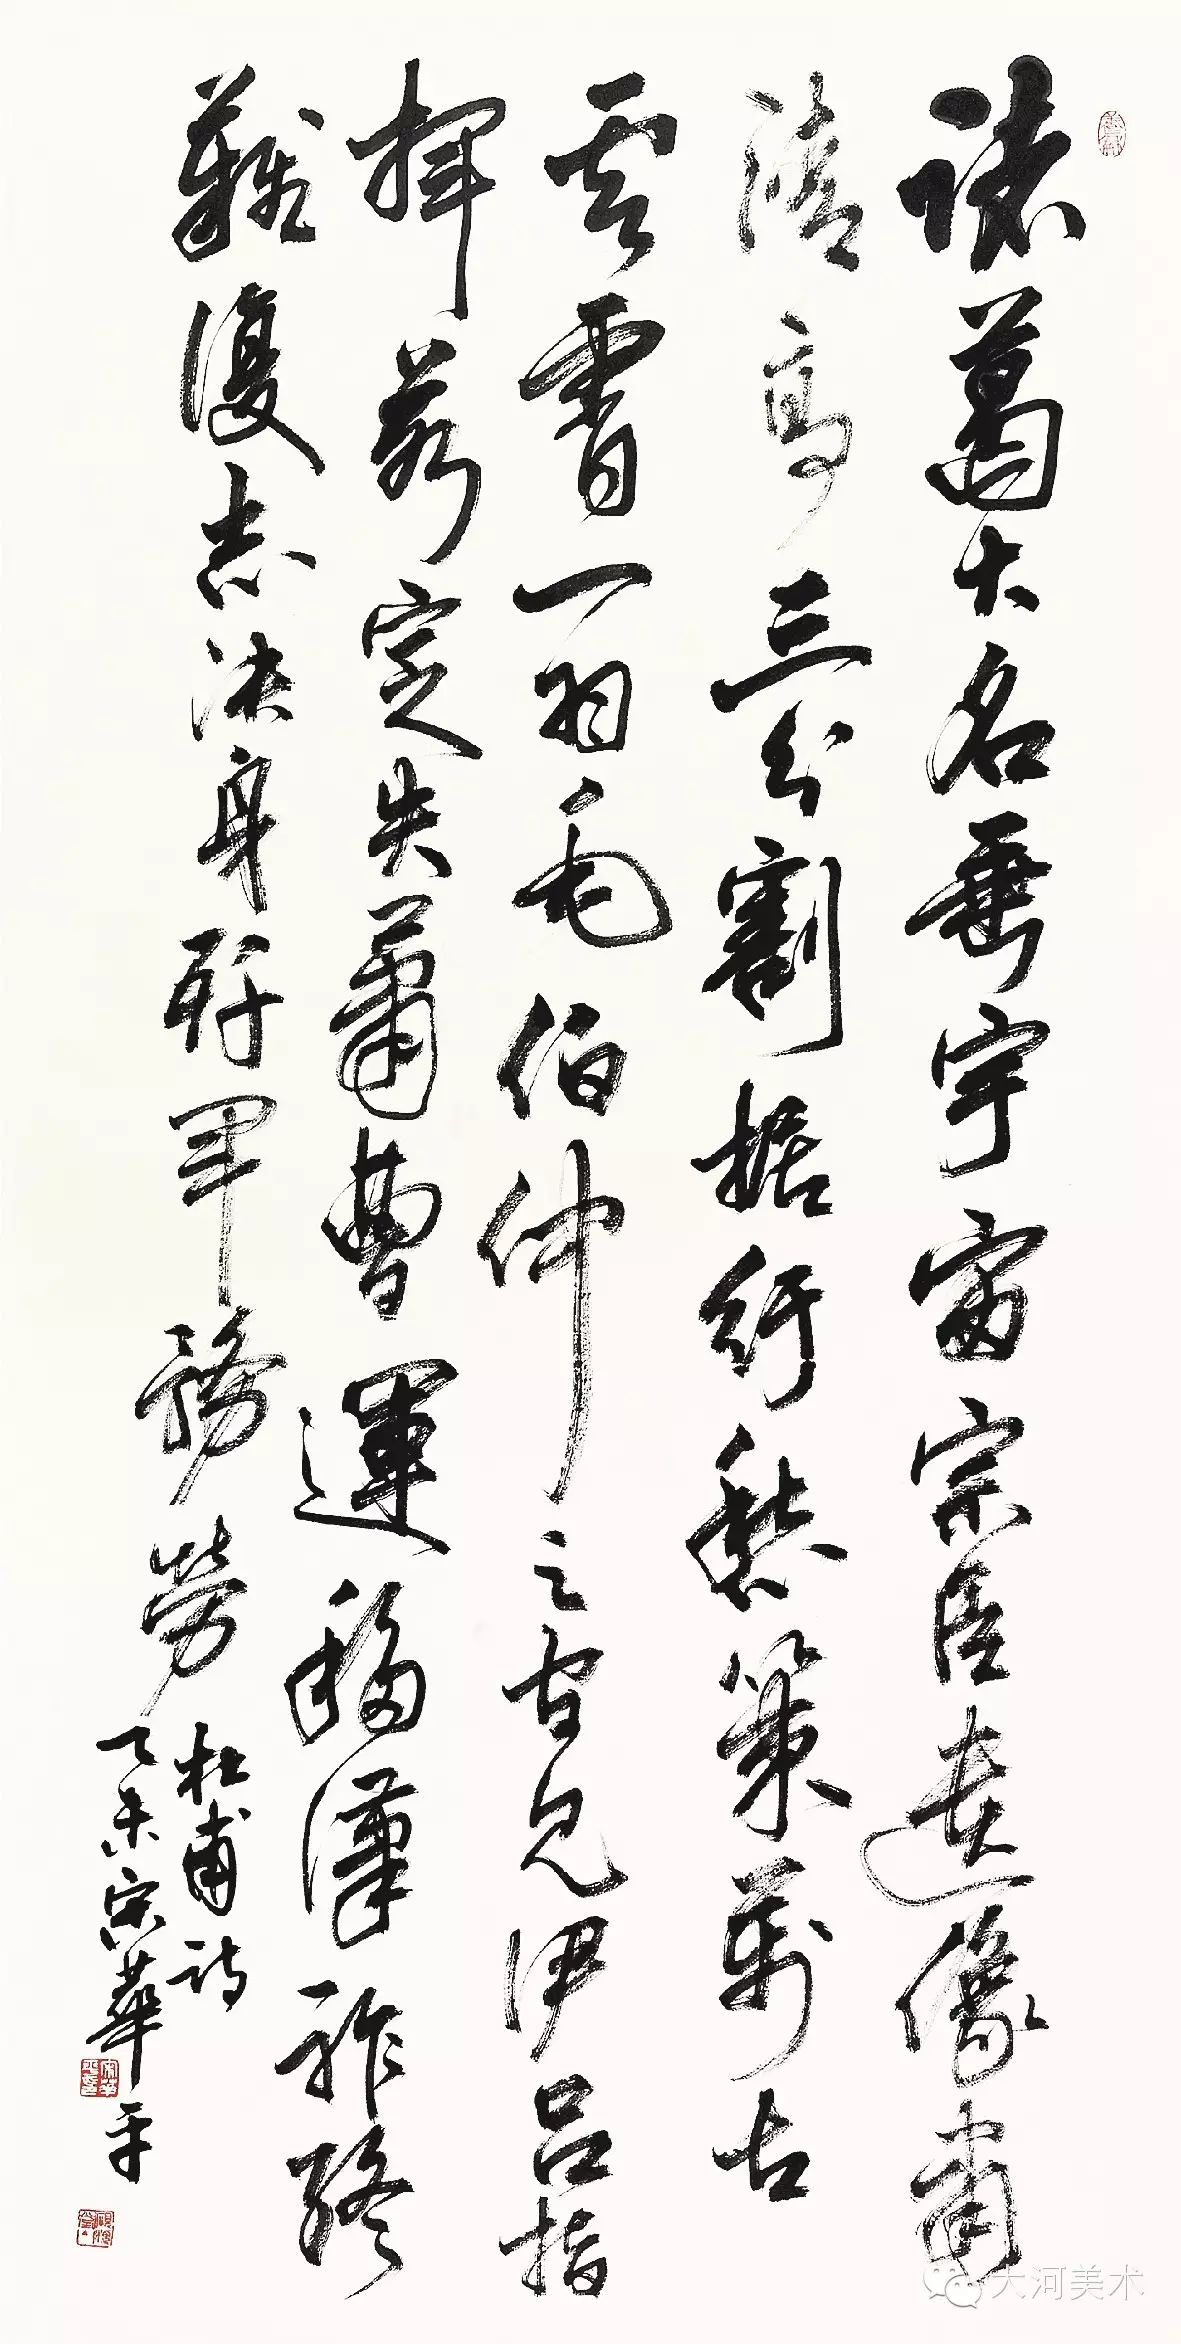 諸葛大名垂宇宙宗臣遺像肅
清高三分割据紆愁策萬古
雲霄一羽毛伯仲之間見伊吕指
揮若定失蕭曹運移漢祚終
難復志決身殲軍務勞
杜甫詩
乙未宋華平
大河美术